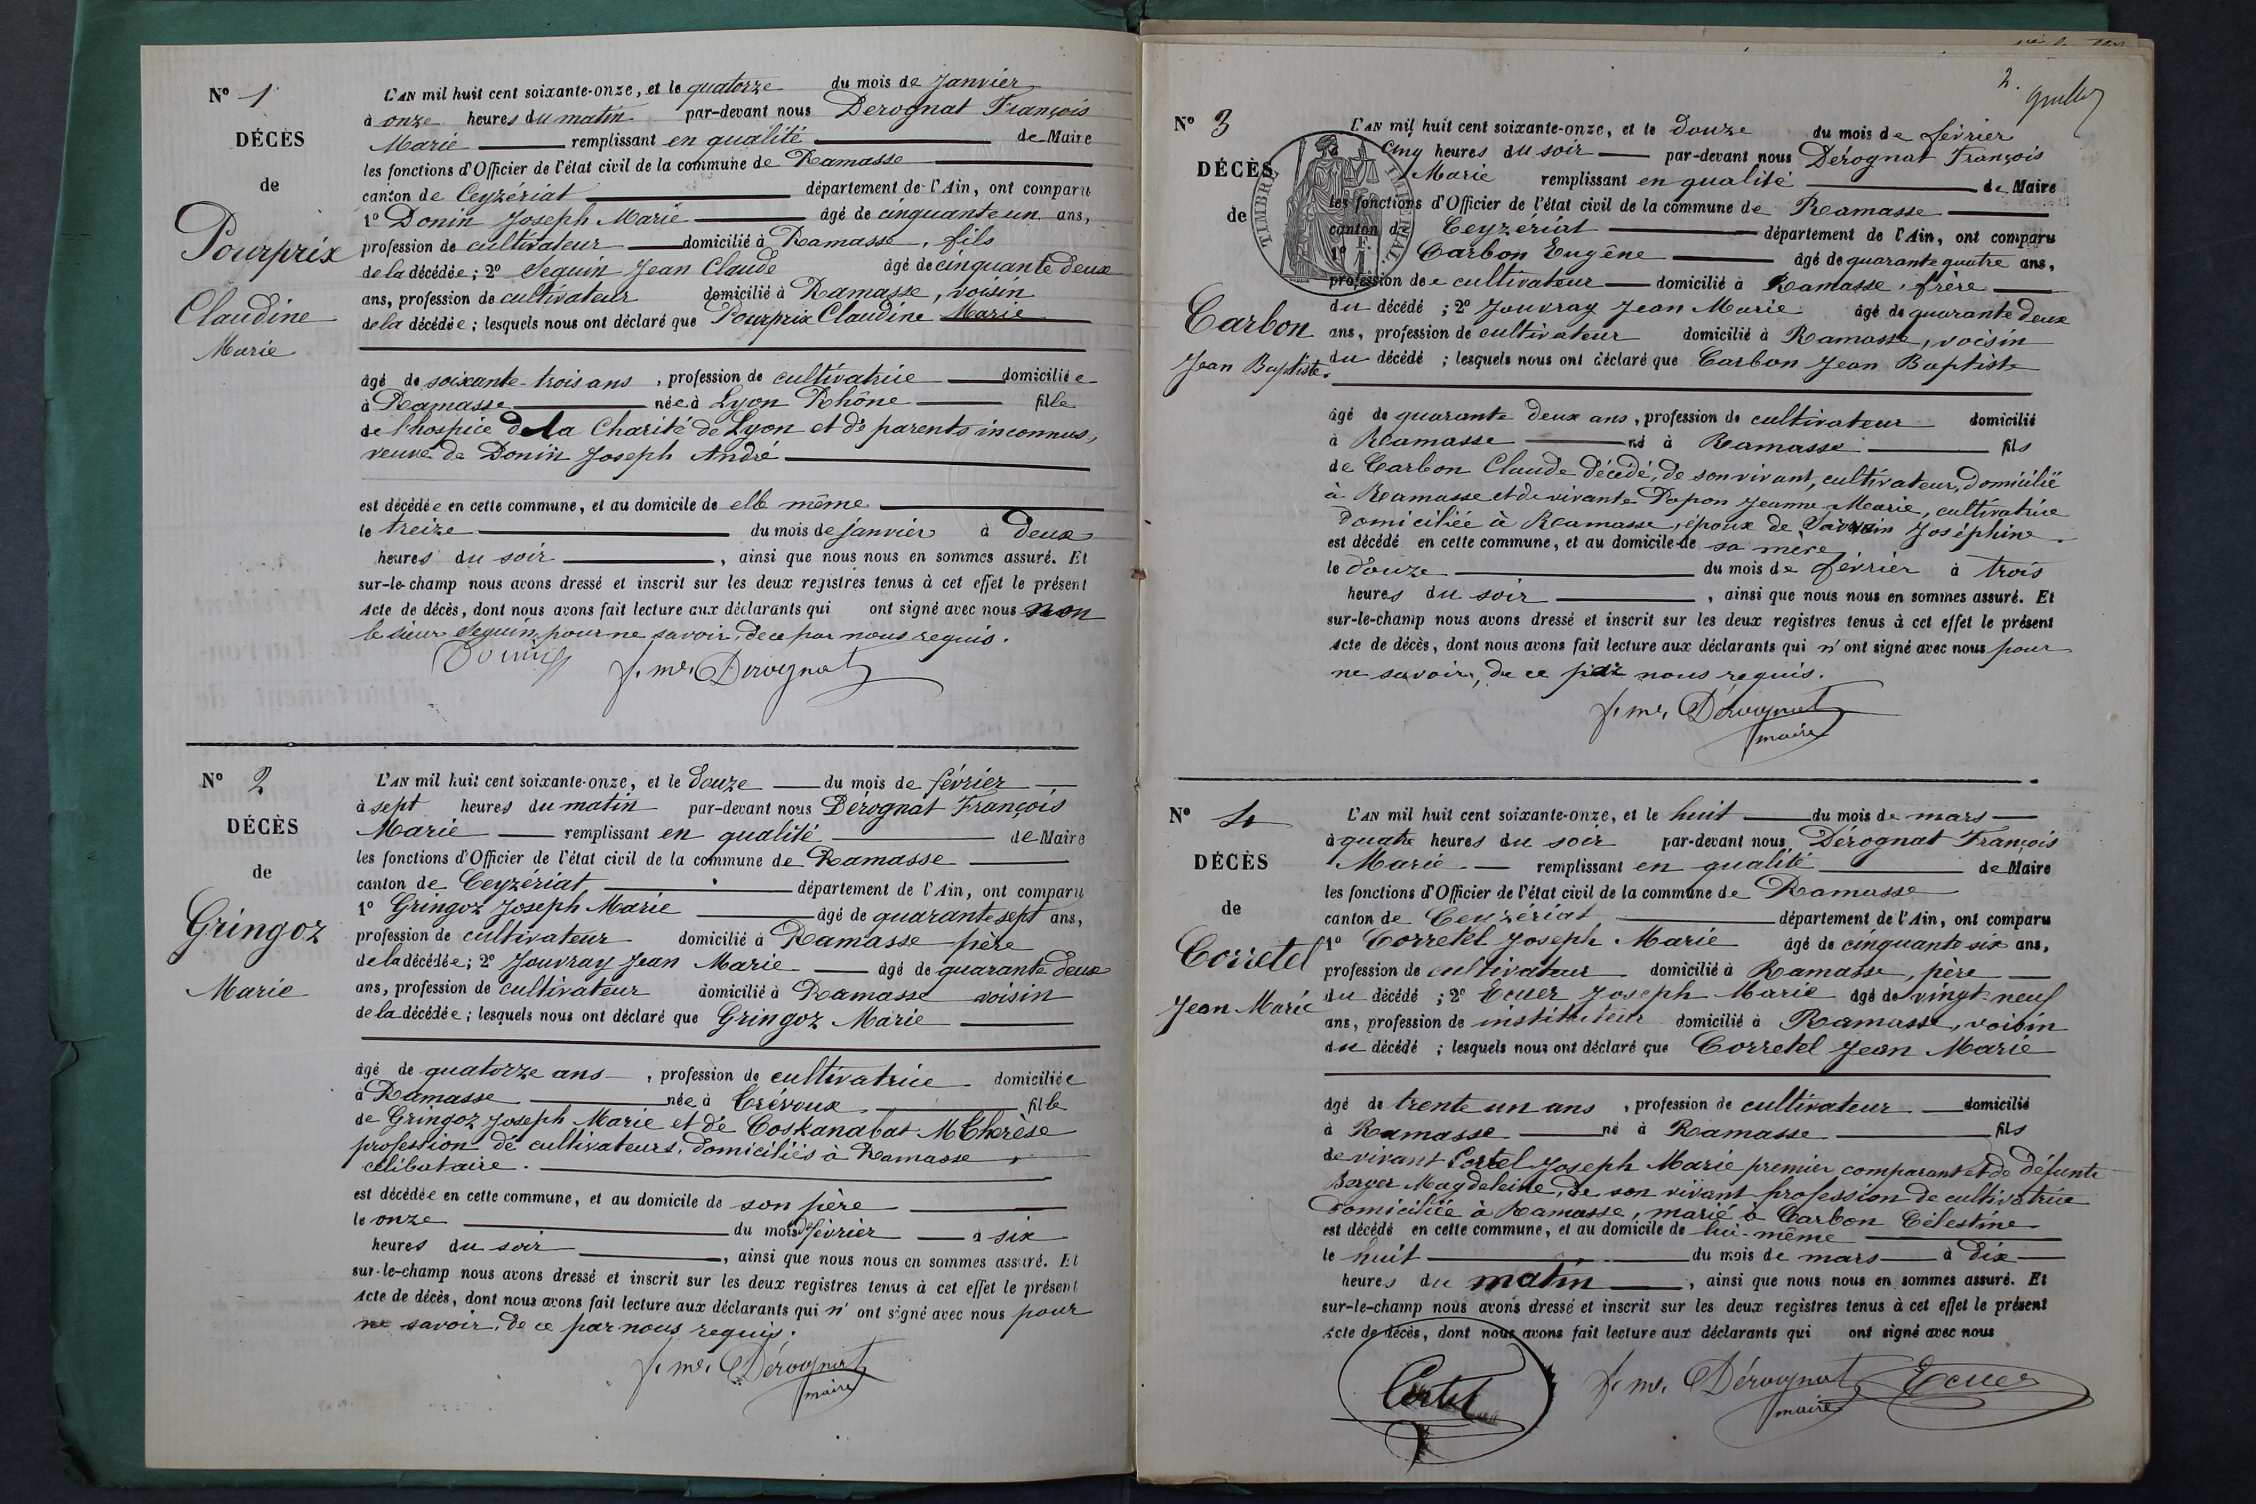 N° 1
DÉCÈS
de
Pourprix
Claudine
Marie
L'AN mil huit cent soixante-onze, et le quatorze du mois de Janvier
à onze heures du matin par-devant nous Dérognat François
Marie remplissant en qualité de Maire
les fonctions d'Officier de l'état civil de la commune de Ramasse
canton de Ceyzériat département de l'Ain, ont comparu
1° Donin Joseph Marie âgé de cinquante un ans,
profession de cultivateur domicilié à Ramasse, fils
de la décédée; 2° Seguin Jean Claude âgé de cinquante deux
ans, profession de cultivateur domicilié à Ramasse, voisin
de la décédée; lesquels nous ont déclaré que Pourprix Claudine Marie
âgé de soixante-trois ans, profession de cultivatrice domiciliée
à Ramasse née à Lyon Rhône fille
de l'hospice de la Charité de Lyon et de parents inconnus,
veuve de Donin Joseph André
est décédée en cette commune, et au domicile de elle même
le treize du mois de janvier à deux
heures du soir, ainsi que nous nous en sommes assuré. Et
sur-le-champ nous avons dressé et inscrit sur les deux registres tenus à cet effet le présent
Acte de décès, dont nous avons fait lecture aux déclarants qui ont signé avec nous non
le sieur Seguin, pour ne savoir, de ce par nous requis.
Donin f. me. Dérognat
N° 2
DÉCÈS
de
Gringoz
Marie
L'AN mil huit cent soixante-onze, et le douze du mois de février
à sept heures du matin par-devant nous Dérognat François
Marie remplissant en qualité de Maire
les fonctions d'Officier de l'état civil de la commune de Ramasse
canton de Ceyzériat département de l'Ain, ont comparu
1° Gringoz Joseph Marie âgé de quarante sept ans,
profession de cultivateur domicilié à Ramasse père
de la décédée; 2° Jouvray Jean Marie âgé de quarante deux
ans, profession de cultivateur domicilié à Ramasse voisin
de la décédée; lesquels nous ont déclaré que Gringoz Marie
âgé de quatorze ans, profession de cultivatrice domiciliée
à Ramasse née à Trévoux fille
de Gringoz Joseph Marie et de Coskanabat M Thérèse
profession de cultivateurs, domiciliés à Ramasse,
célibataire.
est décédée en cette commune, et au domicile de son père
le onze du mois février à six
heures du soir, ainsi que nous nous en sommes assuré. Et
sur-le-champ nous avons dressé et inscrit sur les deux registres tenus à cet effet le présent
Acte de décès, dont nous avons fait lecture aux déclarants qui n' ont signé avec nous pour
ne savoir, de ce par nous requis.
f. me. Dérognat
maire
2.
N° 3
DÉCÈS
de
Carbon
Jean Baptiste.
TIMBRE IMPÉRIAL
L'AN mil huit cent soixante-onze, et le douze du mois de février
cinq heures du soir par-devant nous Dérognat François
Marie remplissant en qualité de Maire
les fonctions d'Officier de l'état civil de la commune de Ramasse
canton de Ceyzériat département de l'Ain, ont comparu
1° Carbon Eugêne âgé de quarante quatre ans,
profession de cultivateur domicilié à Ramasse, frère
du décédé; 2° Jouvray Jean Marie âgé de quarante deux
ans, profession de cultivateur domicilié à Ramasse, voisin
du décédé; lesquels nous ont déclaré que Carbon Jean Baptiste
âgé de quarante deux ans, profession de cultivateur domicilié
à Ramasse né à Ramasse fils
de Carbon Claude décédé, de son vivant, cultivateur, domicilié
à Ramasse et de vivante Papon Jeanne Marie, cultivatrice
domiciliée à Ramasse, époux de Joséphine.
est décédé en cette commune, et au domicile de sa mère
le douze du mois de février à trois
heures du soir, ainsi que nous nous en sommes assuré. Et
sur-le-champ nous avons dressé et inscrit sur les deux registres tenus à cet effet le présent
Acte de décès, dont nous avons fait lecture aux déclarants qui n' ont signé avec nous pour
ne savoir, de ce par nous requis.
f. me. Dérognat
maire
N° 4
DÉCÈS
de
Corretel
Jean Marie
L'AN mil huit cent soixante-onze, et le huit du mois de mars
à quatre heures du soir par-devant nous Dérognat François
Marie remplissant en qualité de Maire
les fonctions d'Officier de l'état civil de la commune de Ramasse
canton de Ceyzériat département de l'Ain, ont comparu
1° Corretel Joseph Marie âgé de cinquante six ans,
profession de cultivateur domicilié à Ramasse, père
du décédé; 2° Ecuer Joseph Marie âgé de vingt-neuf
ans, profession de instituteur domicilié à Ramasse, voisin
du décédé; lesquels nous ont déclaré que Corretel Jean Marie
âgé de trente un ans, profession de cultivateur domicilié
à Ramasse né à Ramasse fils
de vivant Cortel Joseph Marie premier comparant et de défunte
Berger Magdeleine, de son vivant profession de cultivatrice
domiciliée à Ramasse, marié à Carbon Célestine
est décédé en cette commune, et au domicile de lui-même
le huit du mois de mars à dix
heures du matin, ainsi que nous nous en sommes assuré. Et
sur-le-champ nous avons dressé et inscrit sur les deux registres tenus à cet effet le présent
Acte de décès, dont nous avons fait lecture aux déclarants qui ont signé avec nous
Cortel f. me. Dérognat Ecuer
maire